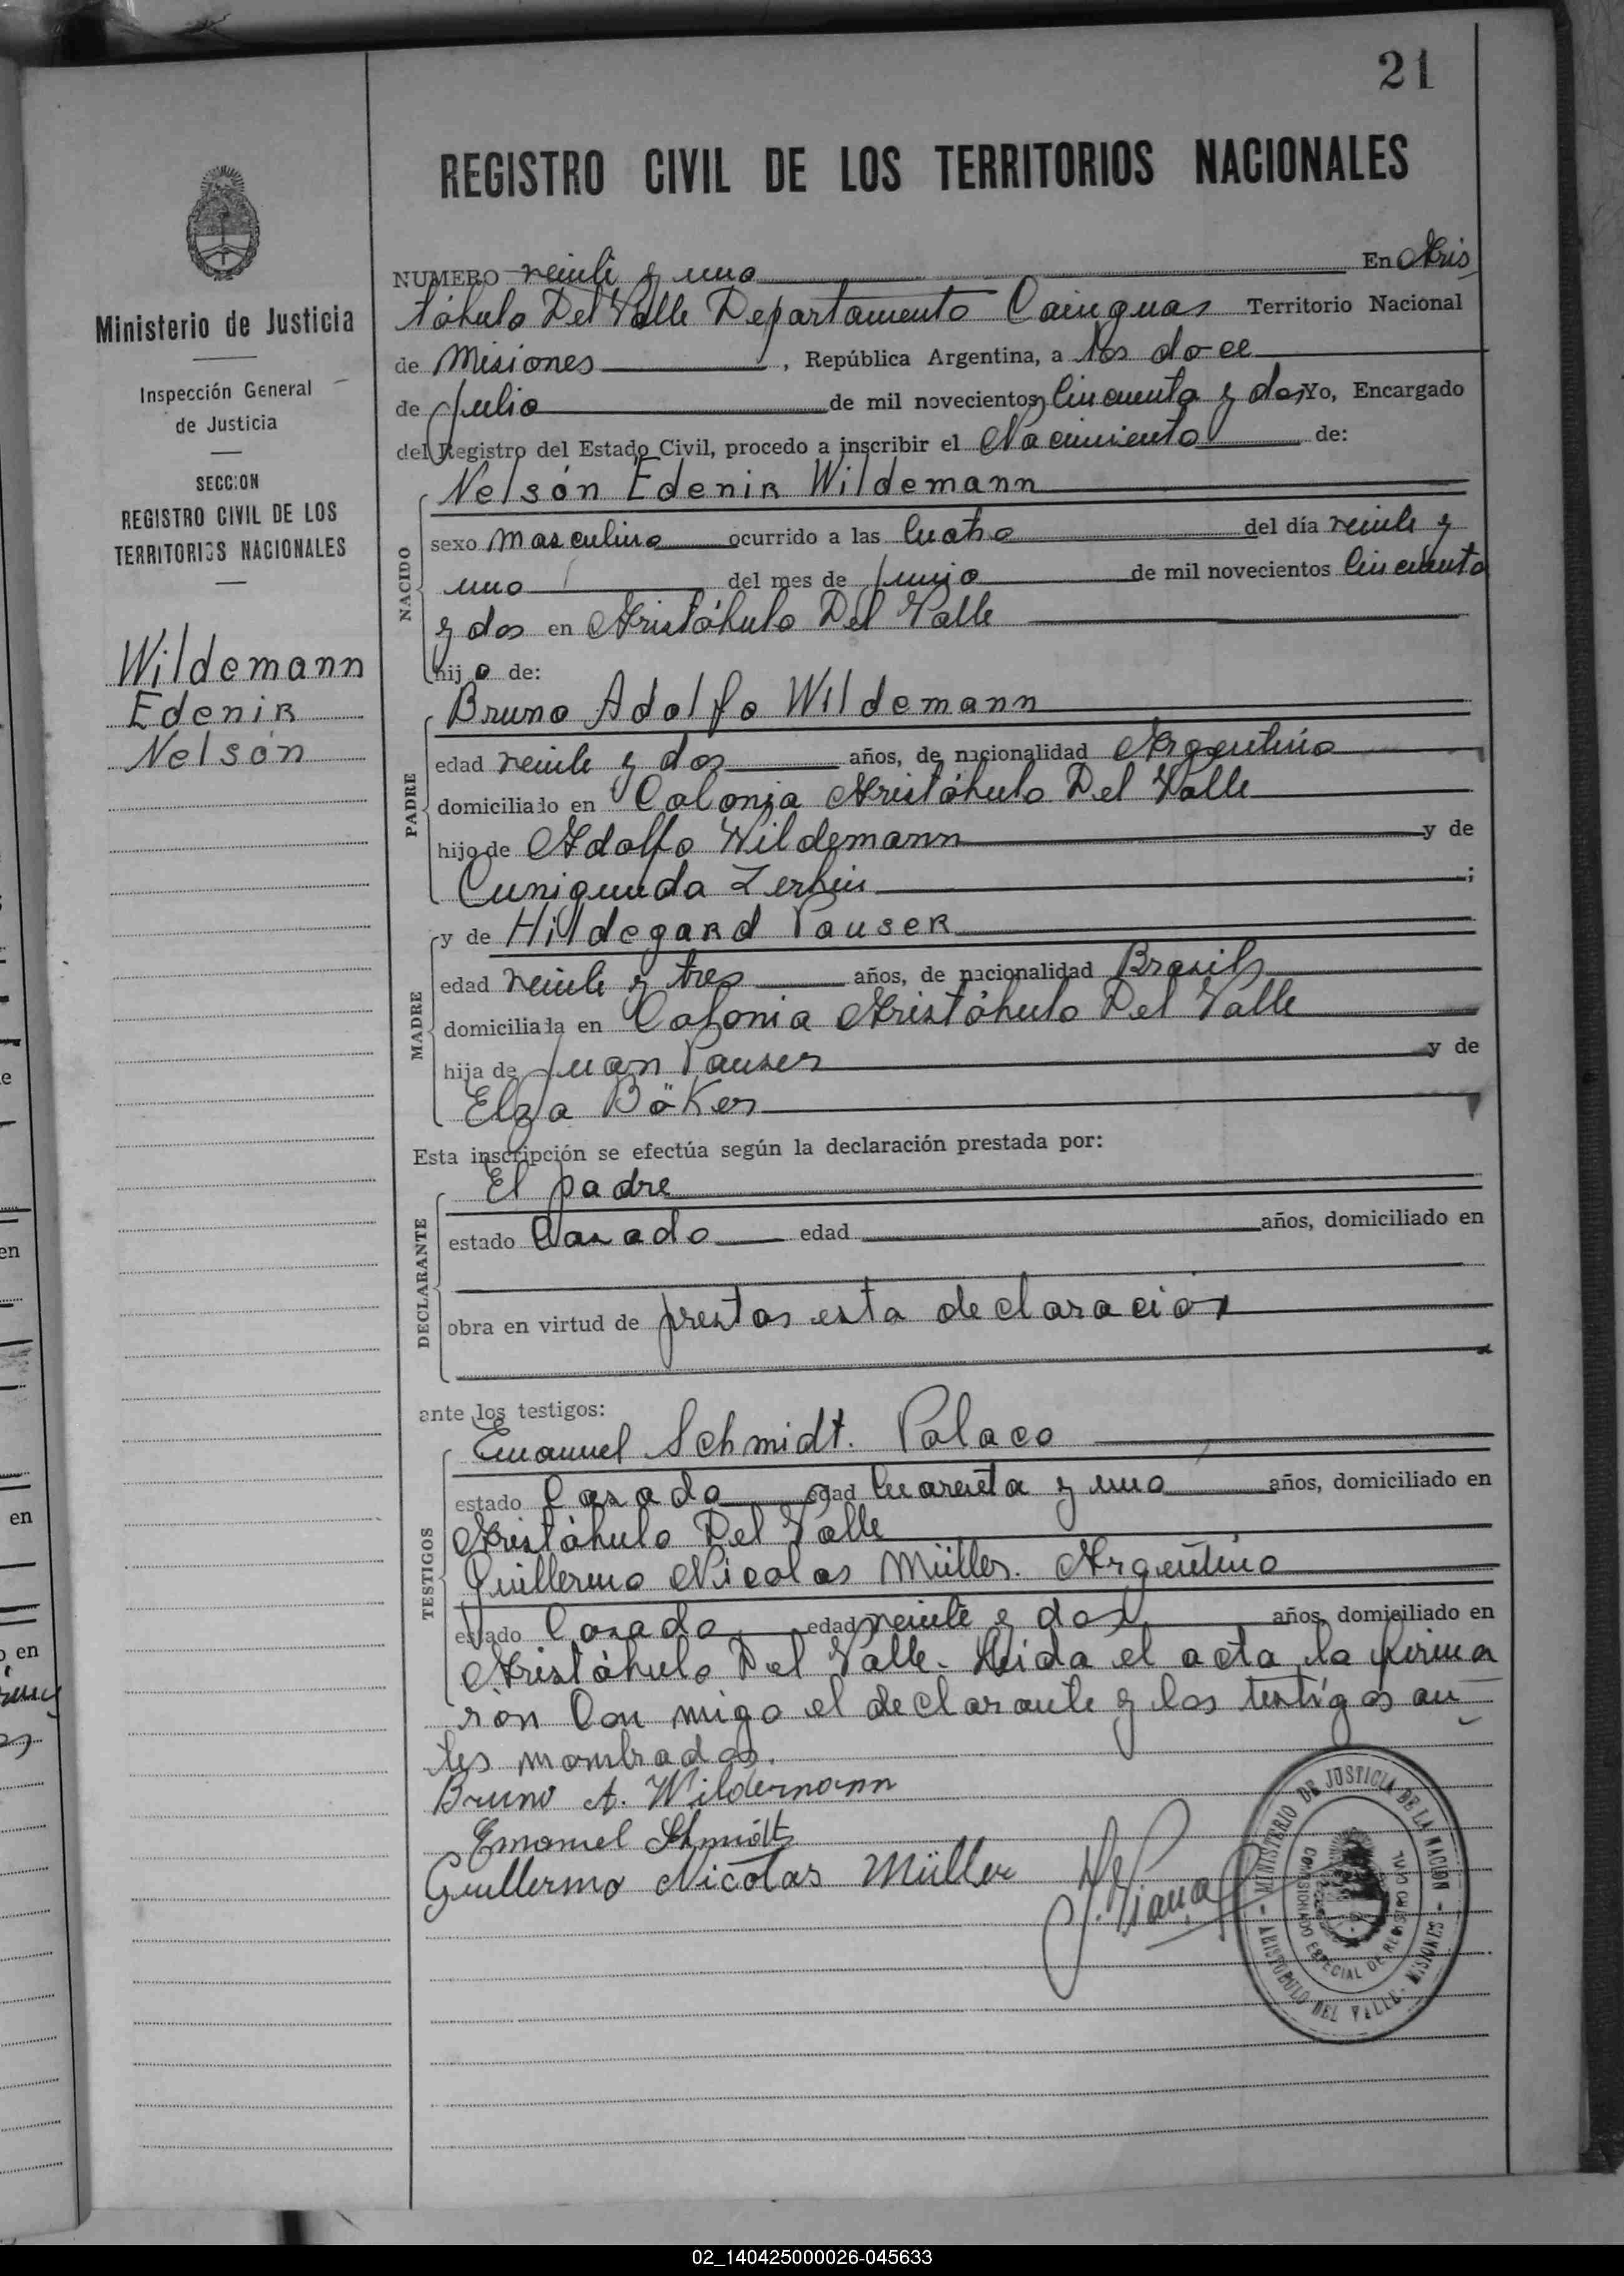 21
REGISTRO CIVIL DE LOS TERRITORIOS NACIONALES
Ministerio de Justicia
Inspección General
de Justicia
SECCION
REGISTRO CIVIL DE LOS
TERRITORIOS NACIONALES
Wildemann
Edenir
Nelsón
NUMERO veinti y uno En Aris
tóbulo Del Valle Departamento Cainguas Territorio Nacional
de Misiones, República Argentina, a los doce
de Julio de mil novecientos Cincuenta y dos Yo, Encargado
del Registro del Estado Civil, procedo a inscribir el Nacimiento de:
NACIDO
Nelsón Edenir Wildemann
sexo masculino ocurrido a las Cuatro del día veinte y
uno del mes de Junio de mil novecientos Cincuenta
y dos en Aristóbulo Del Valle
hijo de:
PADRE
Bruno Adolfo Wildemann
edad veinte y dos años, de nacionalidad Argentino
domiciliado en Colonia Aristóbulo Del Valle
hijo de Adolfo Wildemann y de
Cunigunda Zerbin;
MADRE
y de Hildegard Pauser
edad veinte y tres años, de nacionalidad Brasil
domiciliada en Colonia Aristóbulo Del Valle
hija de Juan Pauser y de
Elza Böker
Esta inscripción se efectúa según la declaración prestada por:
DECLARANTE
El padre
estado Casado edad años, domiciliado en
obra en virtud de prestar esta declaración
ante los testigos:
TESTIGOS
Emanuel Schmidt. Polaco
estado Casado edad Cuarenta y uno años, domiciliado en
Aristóbulo Del Valle
Guillermo Nicolas Müller. Argentino
estado Casado edad veinte y dos años, domiciliado en
Aristóbulo Del Valle. Leida el acta la firma
ron Con migo el declarante y los testigos an
tes nombrados.
Bruno A. Wildemann
Emanuel Schmidt
Guillermo Nicolas Müller
MINISTERIO DE JUSTICIA DE LA NACION
COMISIONADO ESPECIAL DE REGISTRO CIVIL
ARISTOBULO DEL VALLE - MISIONES
02_140425000026-045633